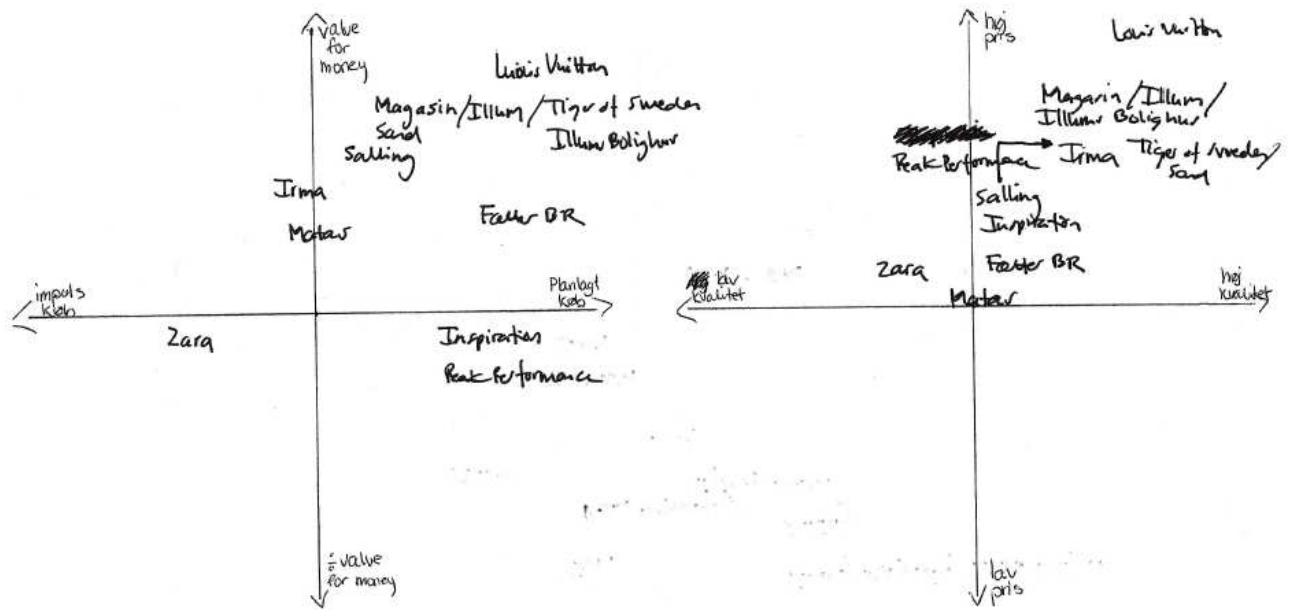 value
for
money
Luois Vuitton
Magasin/Illum/Tiger of Sweden
Sand
Illums Bolighus
Salling
Irma
Matas
Fætter BR
impuls
køb
Planlagt
køb
Zara
Inspiration
Peak Performance
÷ value
for money
høj
pris
Louis Vuitton
Magasin/Illum/
Illums Bolighus
Peak Performance
Irma
Tiger of Sweden/
Sand
Salling
Inspiration
Zara
Fætter BR
Matas
lav
kvalitet
høj
kvalitet
lav
pris